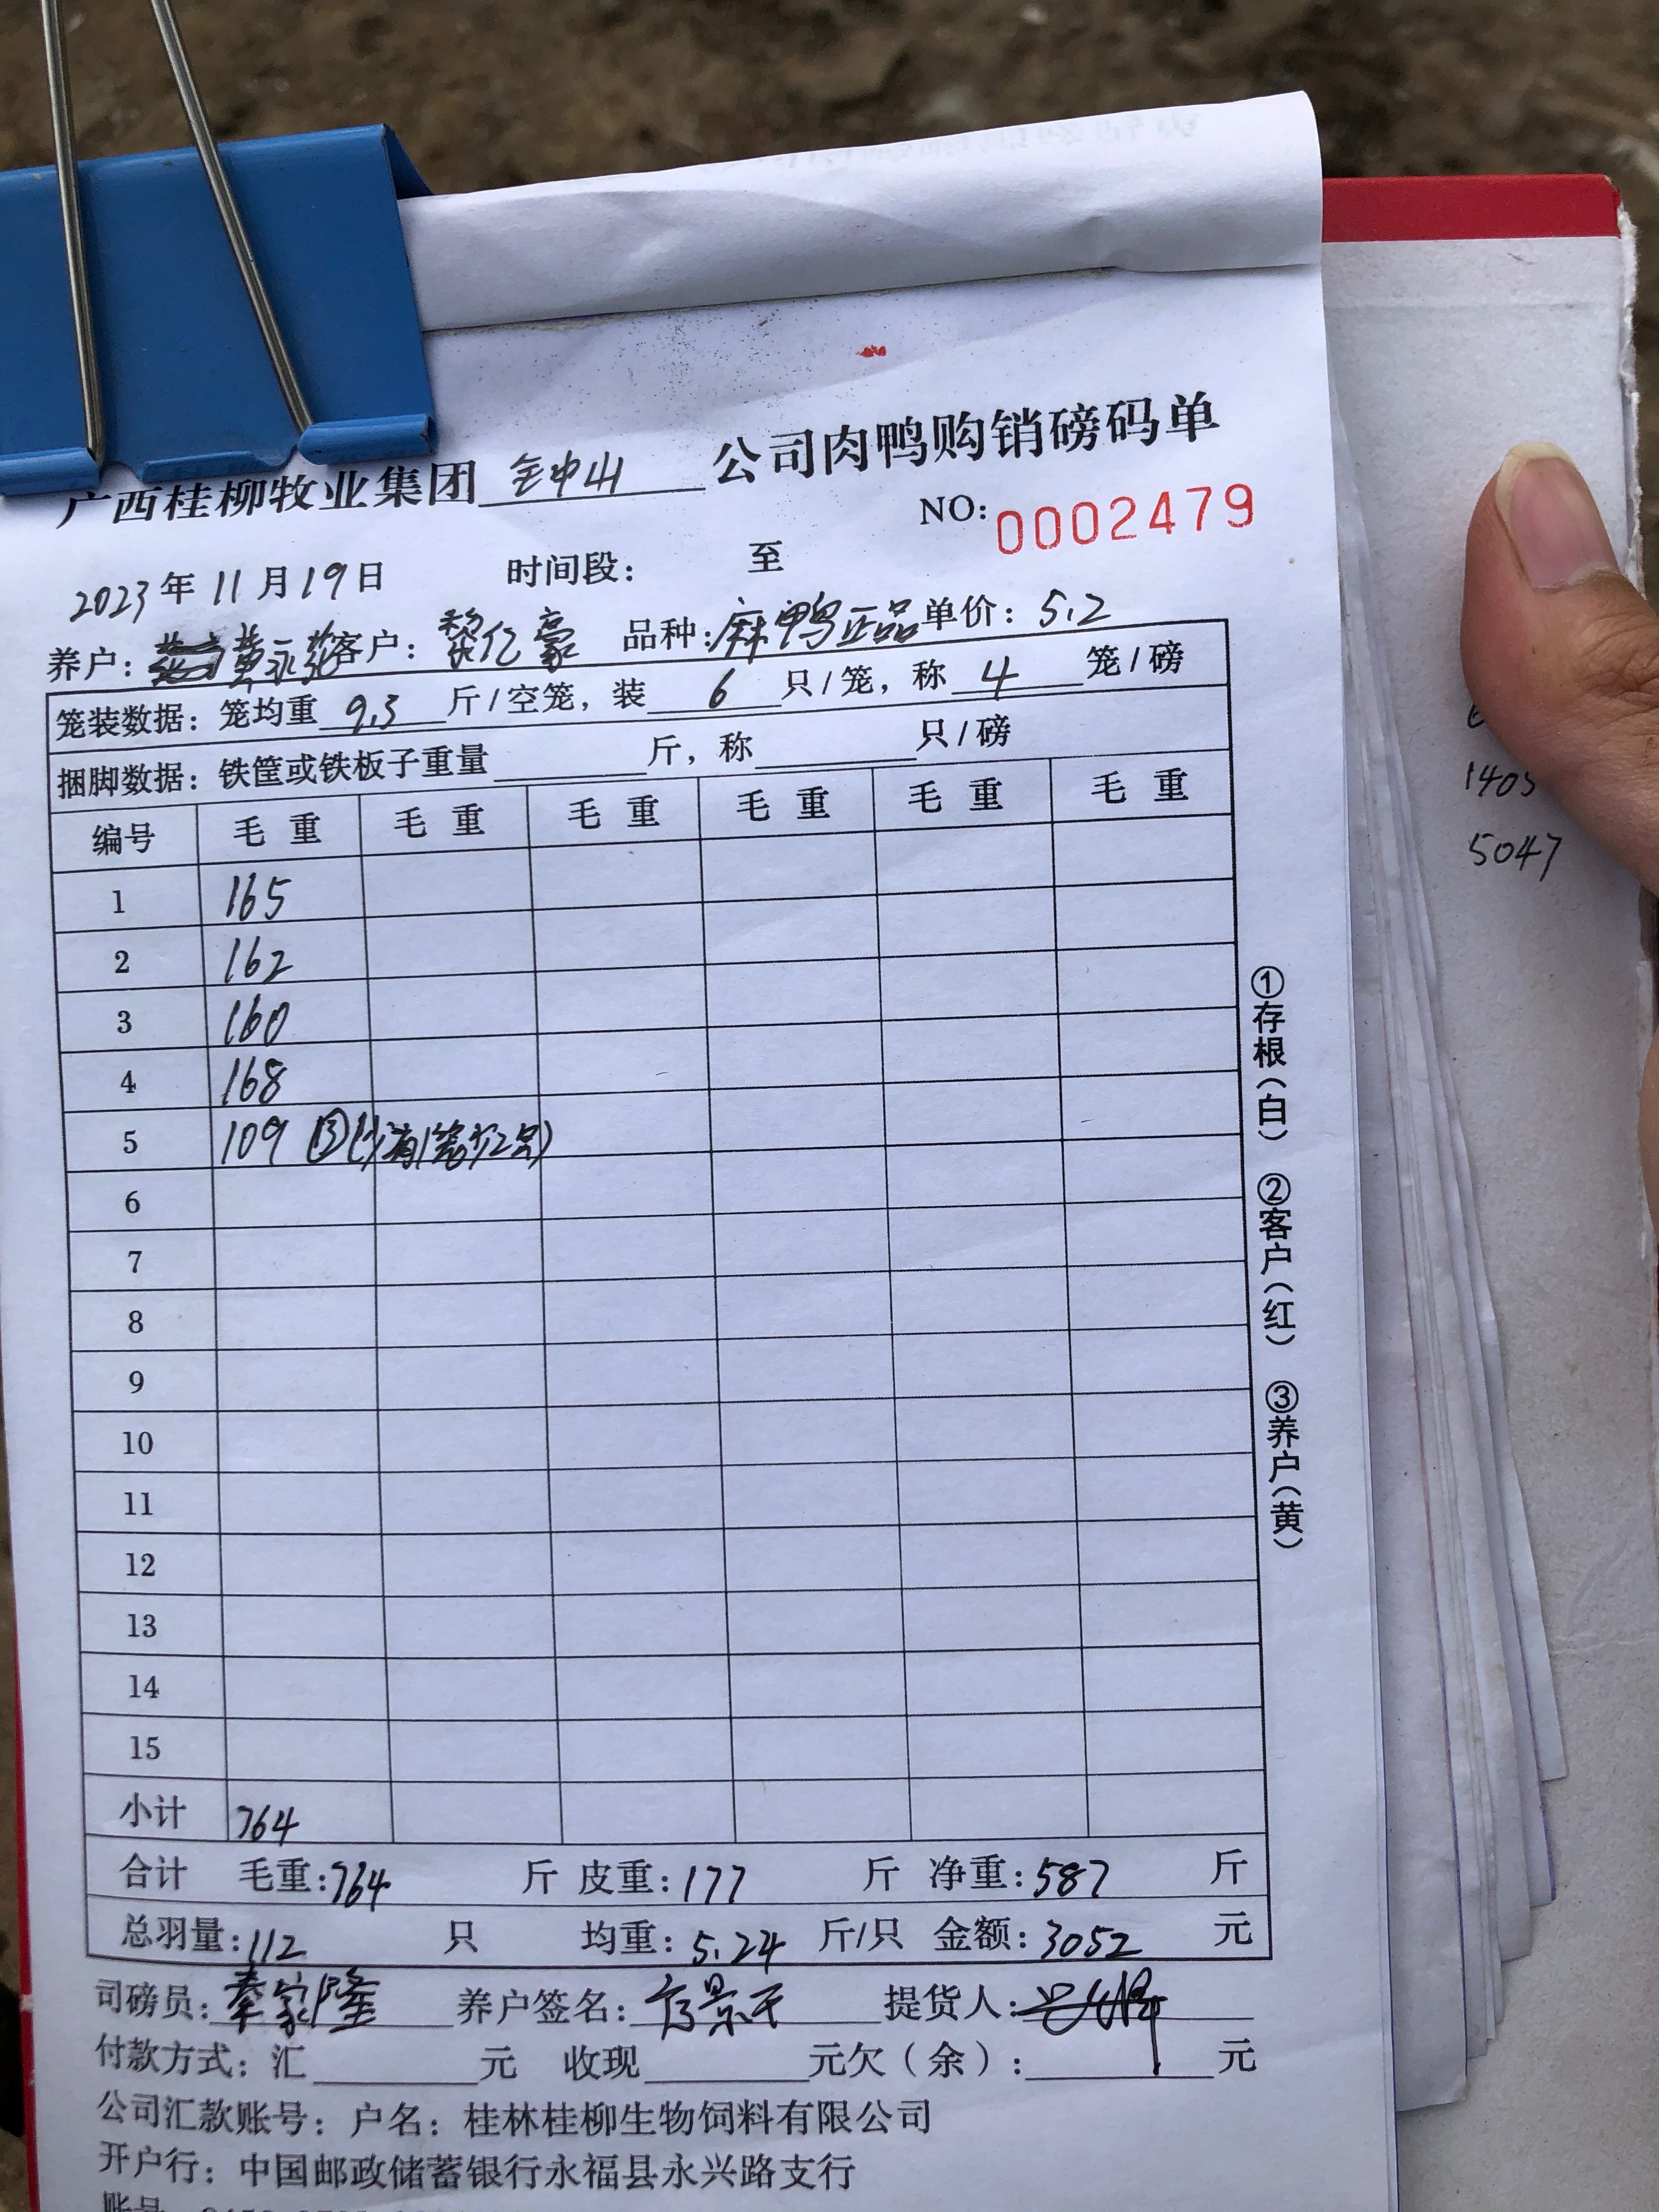 广西桂柳牧业集团 全中山 公司肉鸭购销磅码单
NO: 0002479
2023年 11月19日 时间段: 至
养户: 黄永 客户: 黎亿豪 品种: 麻鸭正品 单价: 5.2
笼装数据: 笼均重 9.3 斤/空笼, 装 6 只/笼, 称 4 笼/磅
捆脚数据: 铁筐或铁板子重量 斤, 称 只/磅
编号 毛重 毛重 毛重 毛重 毛重 毛重
1 165
2 162
3 160
4 168
5 109 ③(少有1笼少2只)
6
7
8
9
10
11
12
13
14
15
小计 764
合计 毛重: 764 斤 皮重: 177 斤 净重: 587 斤
总羽量: 112 只 均重: 5.24 斤/只 金额: 3052 元
司磅员: 秦家隆 养户签名: 景天 提货人:
付款方式: 汇 元 收现 元欠(余): 元
公司汇款账号: 户名: 桂林桂柳生物饲料有限公司
开户行: 中国邮政储蓄银行永福县永兴路支行
账号
①存根(白) ②客户(红) ③养户(黄)
1405
5047